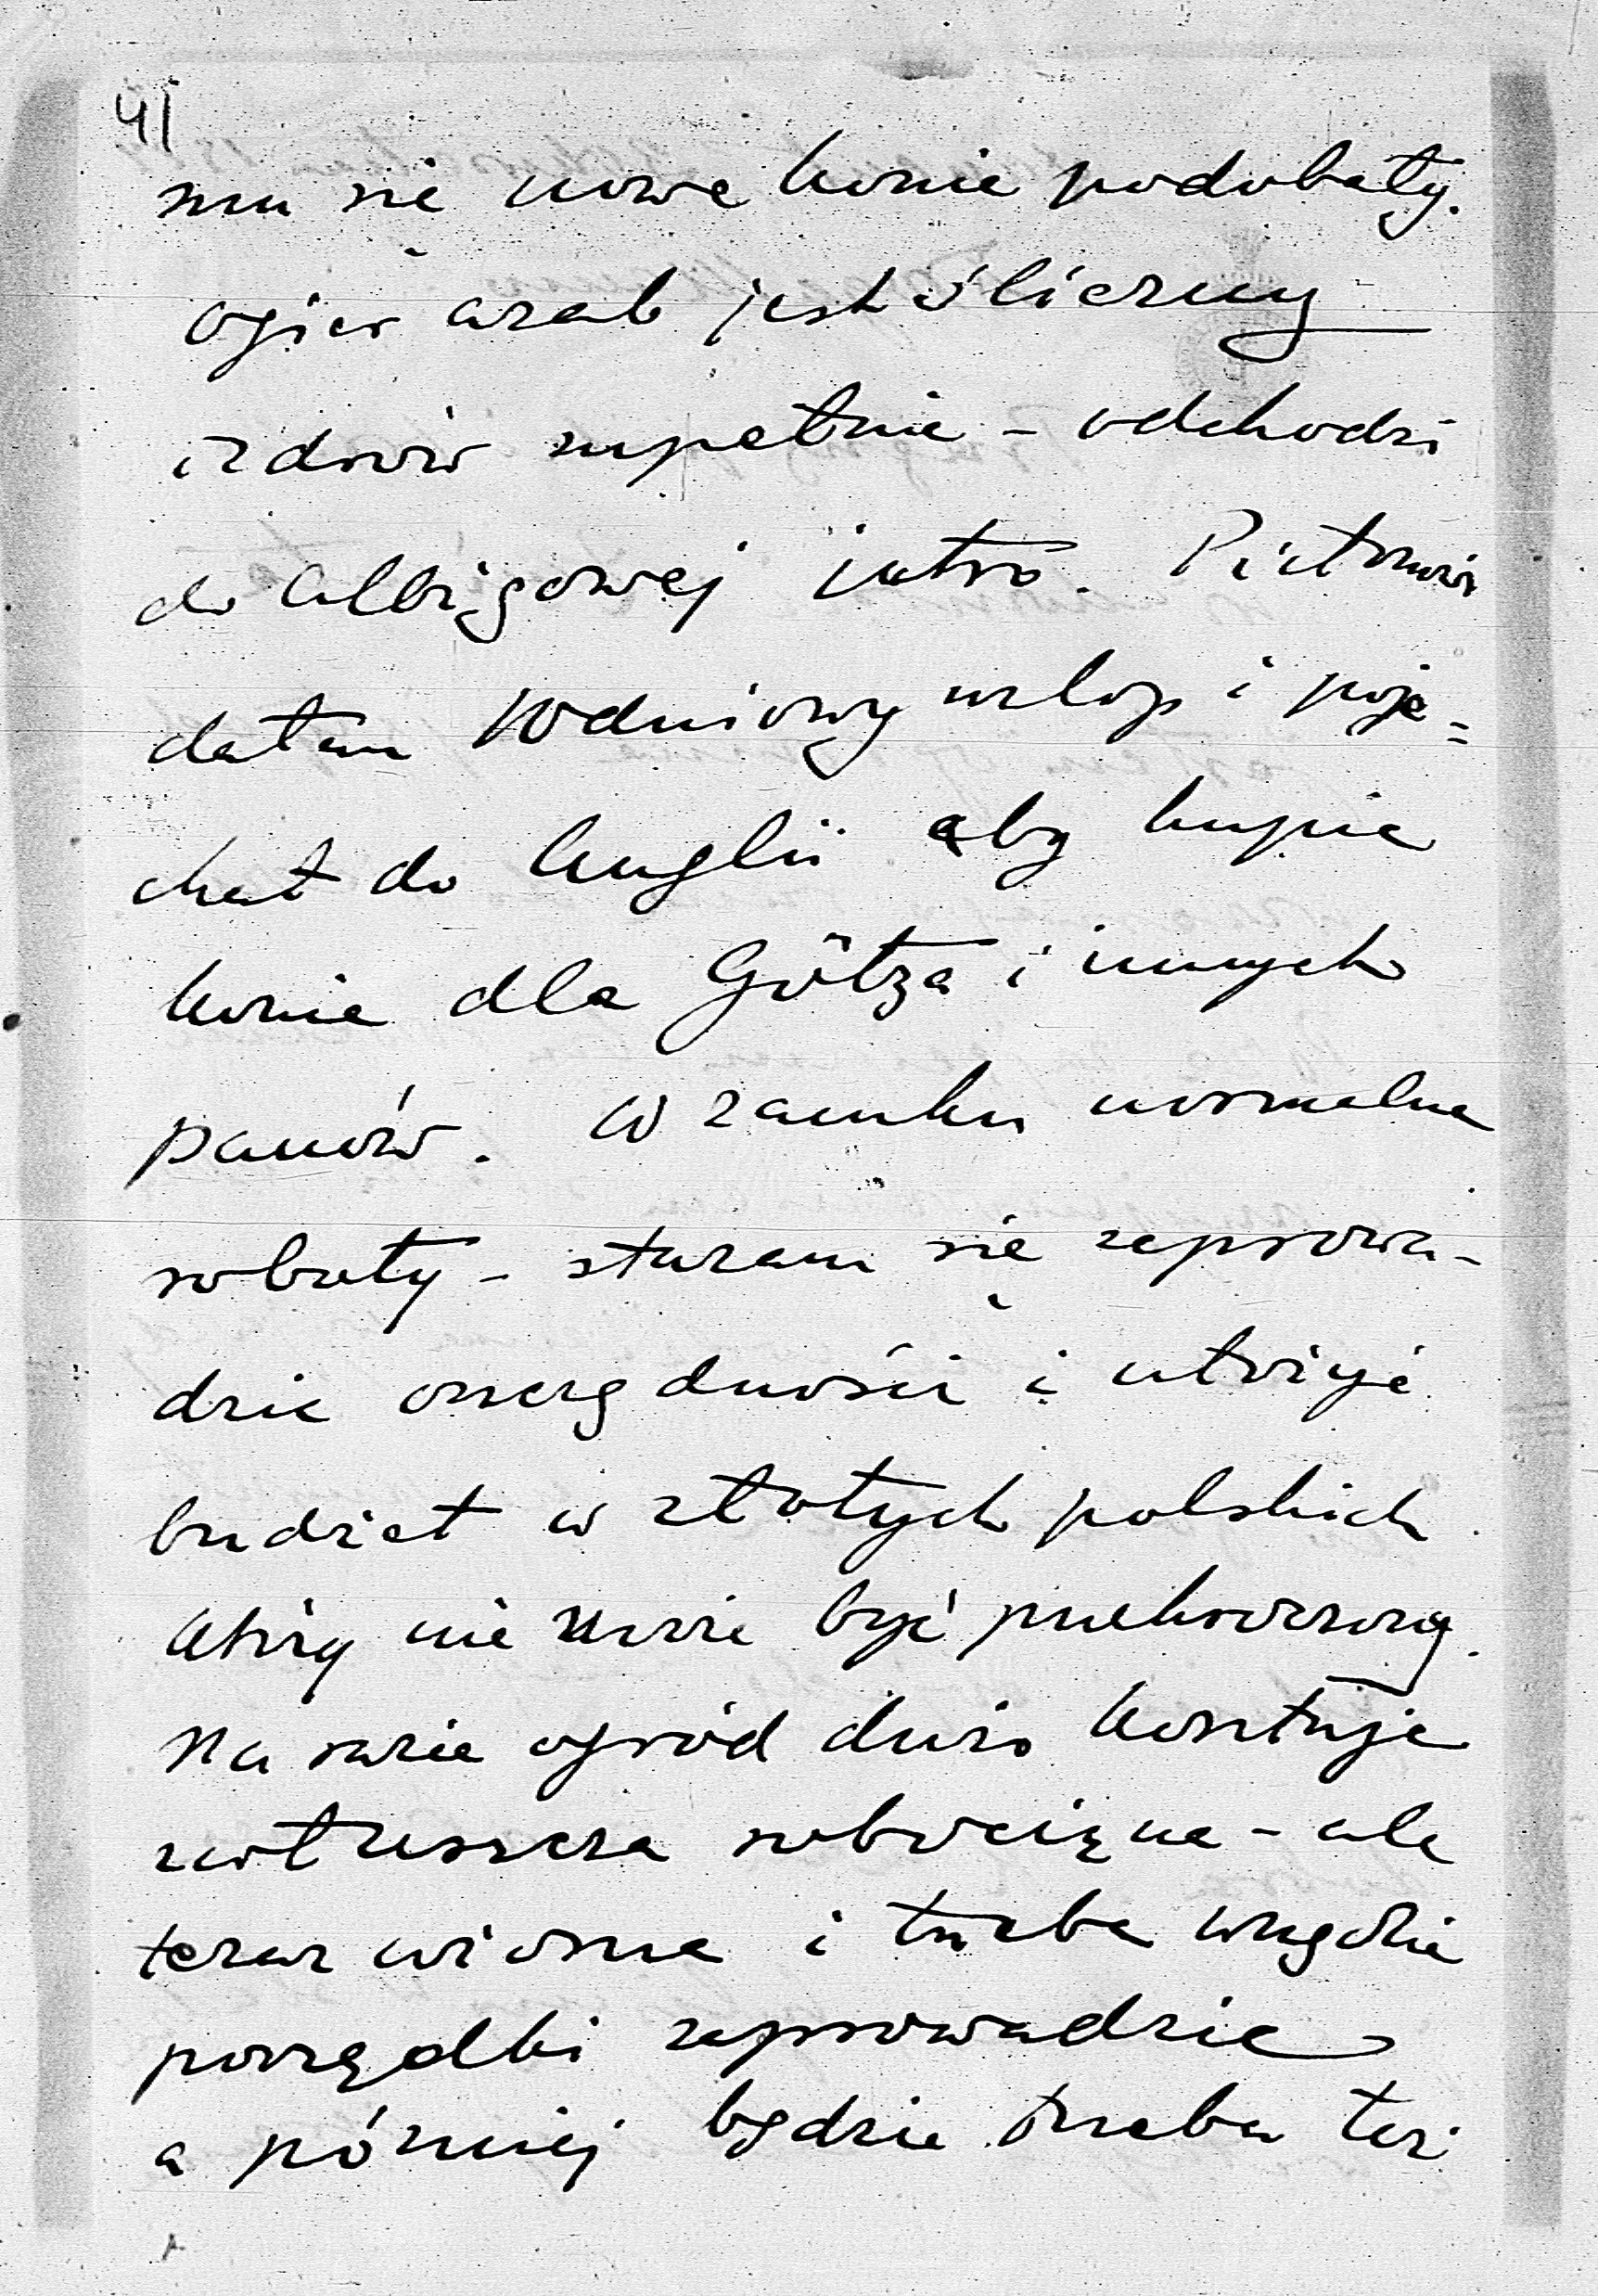 41
mu się nowe konie podobały.
ogier arab jest śliczny
i zdrów zupełnie - odchodzi
do Albigowej jutro. Piotrowi
dałam 10 dniowy urlop i poje=
chał do Anglii aby kupić
konie dla Götza i innych
panów. W zamku normalne
roboty - staram się zaprowa-
dzić oszczędności i ułożyć
budżet w złotych polskich
który nie może być przekroczony.
Na razie ogród dużo kosztuje
zwłaszcza robocizna - ale
teraz wiosna i trzeba wszędzie
porządki zaprowadzić
a później będzie trzeba też